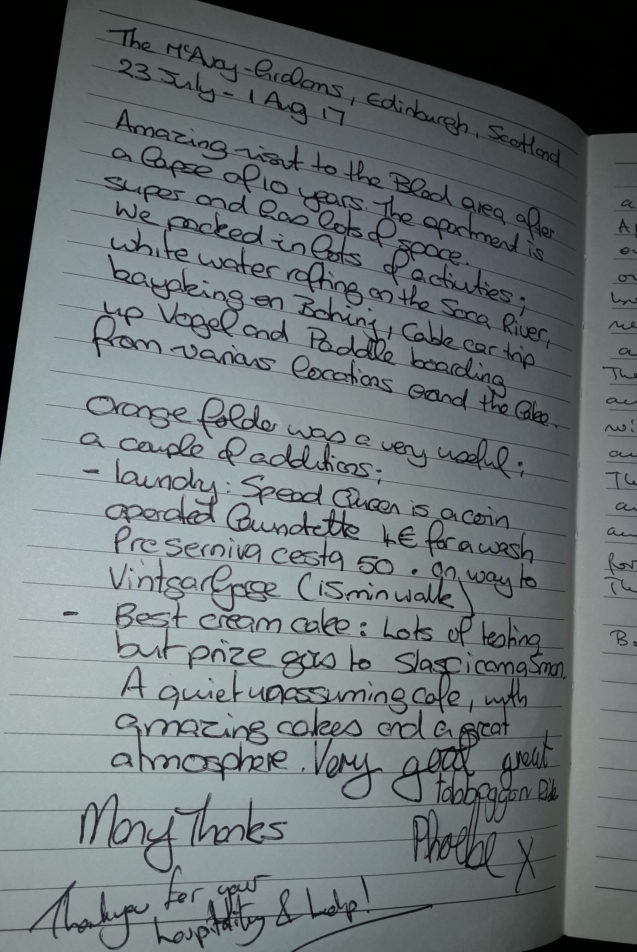 The McAvoy-Girdlans, Edinburgh, Scotland
23 July - 1 Aug 17
Amazing visit to the Bled area after
a lapse of 10 years. The apartment is
super and has lots of space.
We packed in lots of activities;
white water rafting on the Soca River,
kayaking on Bohinj, Cable car trip
up Vogel and Paddle boarding
from various locations around the lake.
Orange folder was a very useful;
a couple of additions;
- laundry: Speed Queen is a coin
operated laundrette 4€ for a wash
Preserniva cesta 50. on way to
Vintgar Gorge (15 min walk)
- Best cream cake: Lots of testing
but prize goes to Slascicarna Smon.
A quiet unassuming cafe, with
amazing cakes and a great
atmosphere. Very good great
tobbeggon Ride
Many Thanks
Phoebe X
Thankyou for your
hospitality & help!
a
A